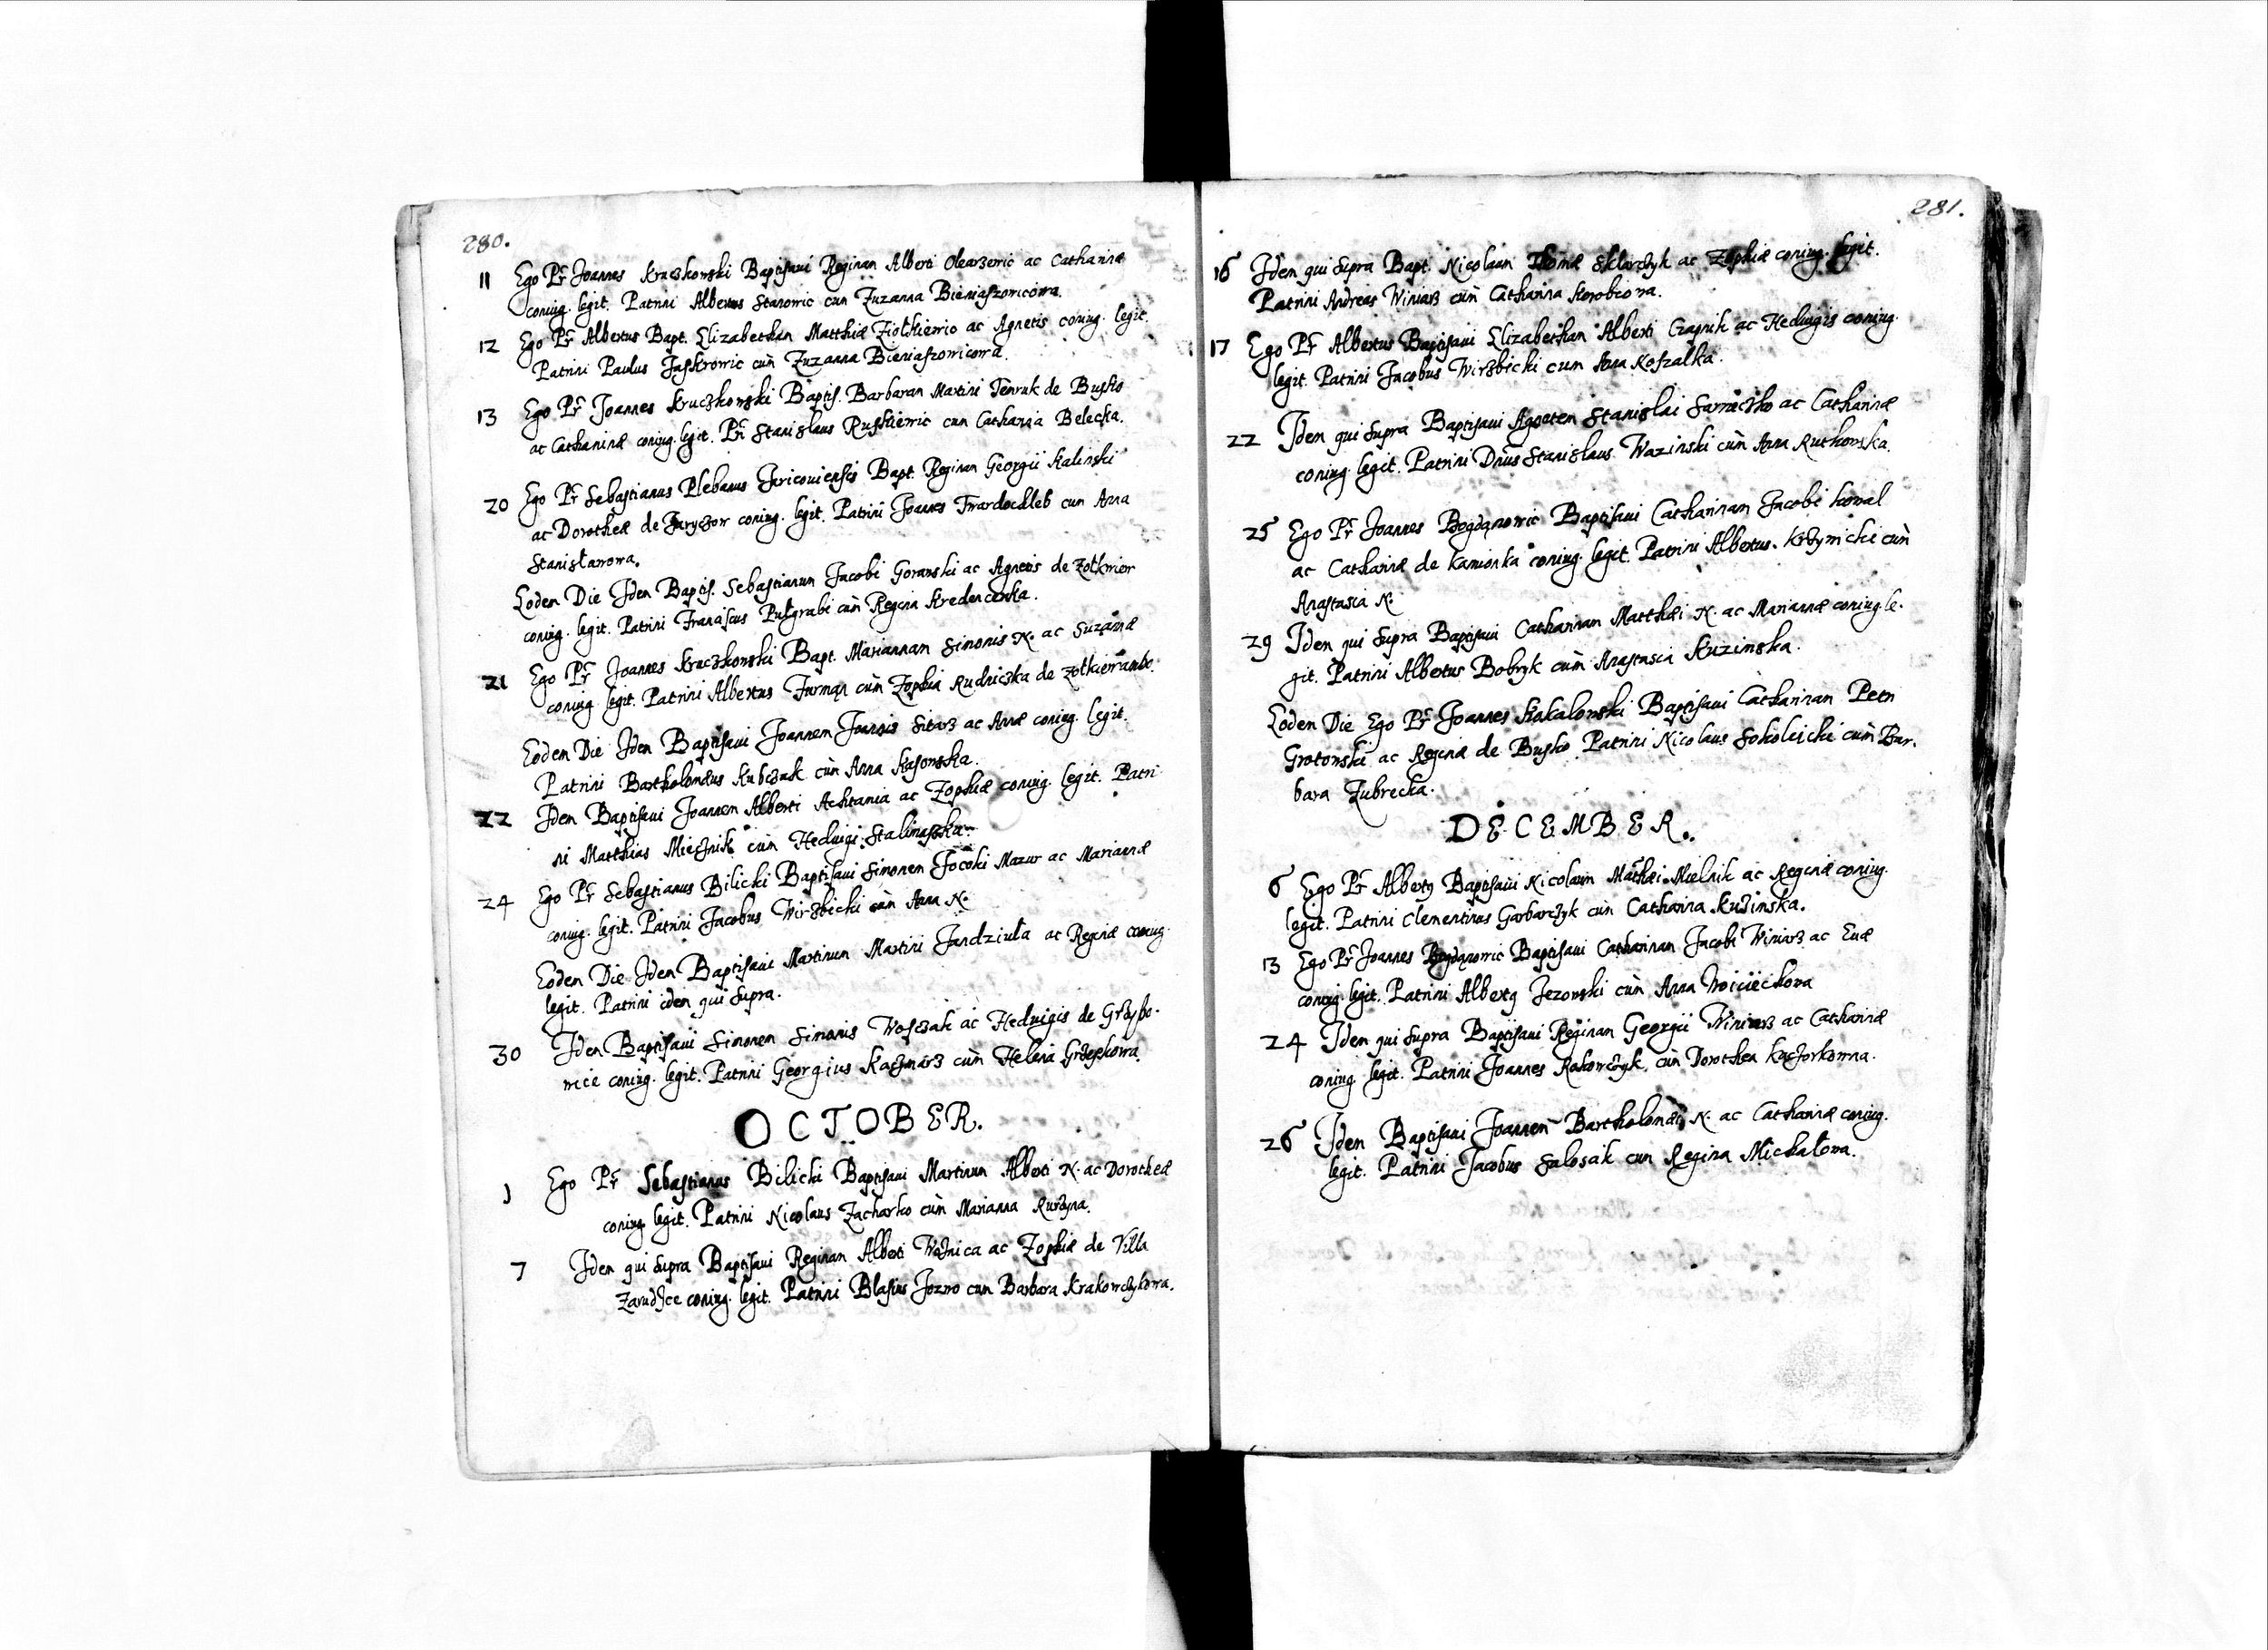 280.
11 Ego Pr Joannes Kruczkowski Baptisaui Reginam Alberti Olearzewic ac Catharinæ
coniug. legit. Patrini Albertus Stanowic cum Zuzanna Bieniaszowicowa.
12 Ego Pr Albertus Bapt. Elizabetham Matthiæ Ziołkiewic ac Agnetis coniug. legit.
Patrini Paulus Jaskrowic cum Zuzanna Bieniaszowicowa.
13 Ego Pr Joannes Kruczkowski Baptis. Barbaram Martini Tenruk de Busko
ac Catharinæ coniug. legit. Pri Stanislaus Ruskiewic cum Catharina Belecka.
20 Ego Pr Sebastianus Plebanus Jaricouiensis Bapt. Reginam Georgii Kalinski
ac Dorotheæ de Jaryczow coniug. legit. Patrini Joannes Twardochleb cum Anna
Stanisławowa.
Eoden Die Idem Baptis. Sebastianum Jacobi Goranski ac Agnetis de Zołkwiew
coniug. legit. Patrini Franciscus Pułgrabi cum Regina Kredencerka.
21 Ego Pr Joannes Kruczkowski Bapt. Mariannam Simonis N. ac Suzannæ
coniug legit. Patrini Albertus Furman cum Zophia Rudniczka de Zołkiew ambo.
Eoden Die Idem Baptisaui Joannem Joannis Sitarz ac Annæ coniug. legit.
Patrini Bartholomæus Kubczak cum Anna Kasowska.
22 Idem Baptisaui Joannem Alberti Achtania ac Zophiæ coniug. legit. Patri
ni Matthias Miecznik cum Heduigi Stalmaszka.
24 Ego Pr Sebastianus Bilicki Baptisaui Simonem Jocoki Mazur ac Mariannæ
coniug. legit. Patrini Jacobus Wirzbicki cum Anna N.
Eoden Die Idem Baptisaui Martinum Martini Jandziuła ac Reginæ coniug.
legit. Patrini iden qui supra.
30 Idem Baptisaui Simonem Simonis Wosczak ac Heduigis de Grzybo-
wice coniug. legit. Patrini Georgius Kaczmarz cum Helena Grzeskowa.
OCTOBER.
1 Ego Pr Sebastianus Bilicki Baptisaui Martinum Alberti N. ac Dorotheæ
coniug legit. Patrini Nicolaus Zacharko cum Marianna Rurzyna.
7 Idem qui supra Baptisaui Reginam Alberti Woznica ac Zophiæ de Villa
Zarudzce coniug. legit. Patrini Blasius Jozwo cum Barbara Krakowczykowa.
281.
16 Idem qui supra Bapt. Nicolaum Thomæ Sklarczyk ac Zophiæ coniug. legit.
Patrini Andreas Winiarz cum Catharina Korobiowa.
17 Ego Pr Albertus Baptisaui Elizabetham Alberti Czapnik ac Heduigis coniug.
legit. Patrini Jacobus Wirzbicki cum Anna Koszalka.
22 Idem qui supra Baptisaui Agneten Stanislai Sarneczko ac Catharinæ
coniug. legit. Patrini Dnus Stanislaus Wazinski cum Anna Rutkowska.
25 Ego Pr Joannes Bogdanowic Baptisaui Catharinam Jacobi Kowal
ac Catharinæ de Kamionka coniug. legit. Patrini Albertus Krzywicki cum
Anastasia N.
29 Idem qui supra Baptisaui Catharinam Matthæi N. ac Mariannæ coniug. le-
git. Patrini Albertus Bobryk cum Anastasia Kuzinska.
Eoden Die Ego Pr Joannes Kakalowski Baptisaui Catharinam Petri
Grotowski ac Reginæ de Busko Patrini Nicolaus Sokoleicki cum Bar.
bara Zubrecka.
DECEMBER.
6 Ego Pr Albertq Baptisaui Nicolaum Mathæi Mielnik ac Reginæ coniug.
legit. Patrini Clementinus Garbarczyk cum Catharina Kuzinska.
13 Ego Pr Joannes Bogdanowic Baptisaui Catharinam Jacobi Winiarz ac Euæ
coniug. legit. Patrini Albertq Jezowski cum Anna Woicieckowa
24 Idem qui supra Baptisaui Reginam Georgii Winiarz ac Catharinæ
coniug. legit. Patrini Joannes Rakowczyk, cum Dorothea Kaczorkowna.
26 Idem Baptisaui Joannem Bartholomæi N. ac Catharinæ coniug.
legit. Patrini Jacobus Salosak cum Regina Michałowa.